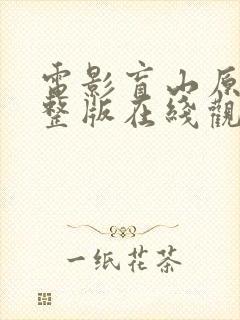 電影盲山原
整版在綫觀
一纸花茶